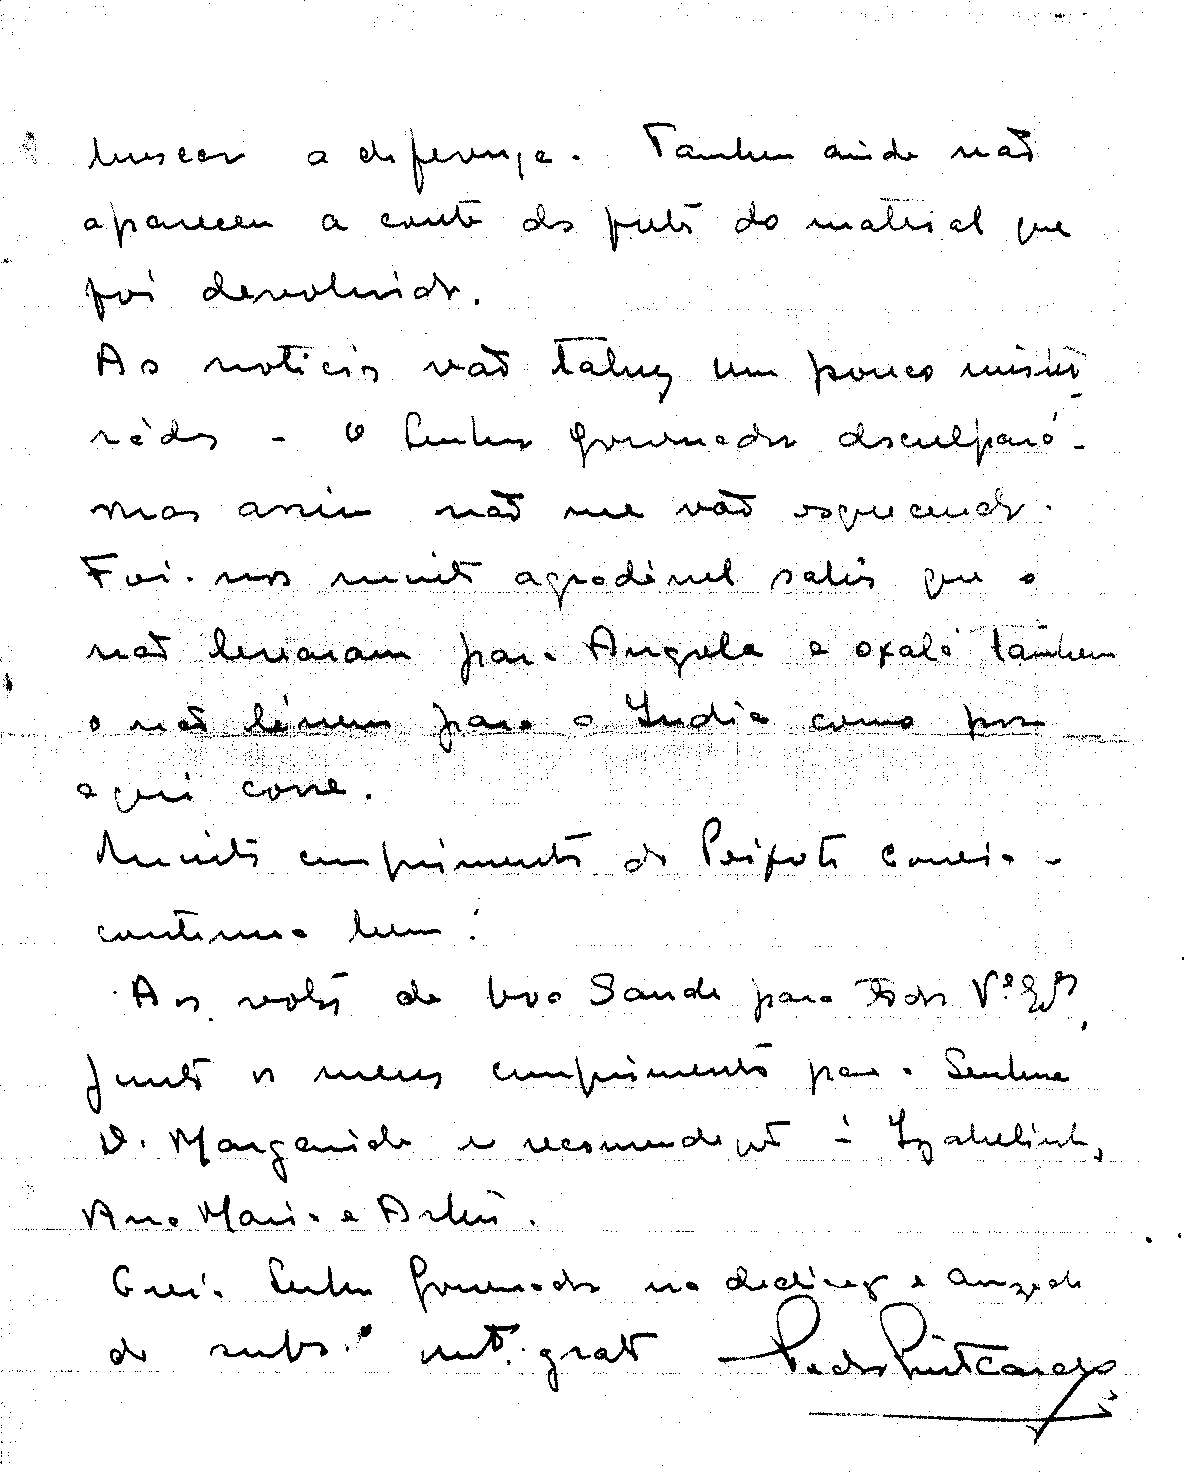 buscar a diferença. Tambem ainda não
apareceu a conta do frete do material que
foi devolvido.
As noticias vão talvez um pouco mistu-
radas - O Senhor Governador desculpará -
mas assim não me vão esquecendo.
Foi-nos muito agradável saber que o
não levaram para Angola e oxalá tambem
o não levem para a India como por
aqui corre.
Muitos cumprimentos do Peixoto Correia -
continua bem!
Aos votos de boa Saude para todos V.ªs Ex.ªs,
junto os meus cumprimentos para a Senhora
D. Margarida e recomendações à Izabelinha,
Ana Maria e Artur.
Creia Senhor Governador na dedicação e amizade
do subo. mto. grato Pedro Pintcardo